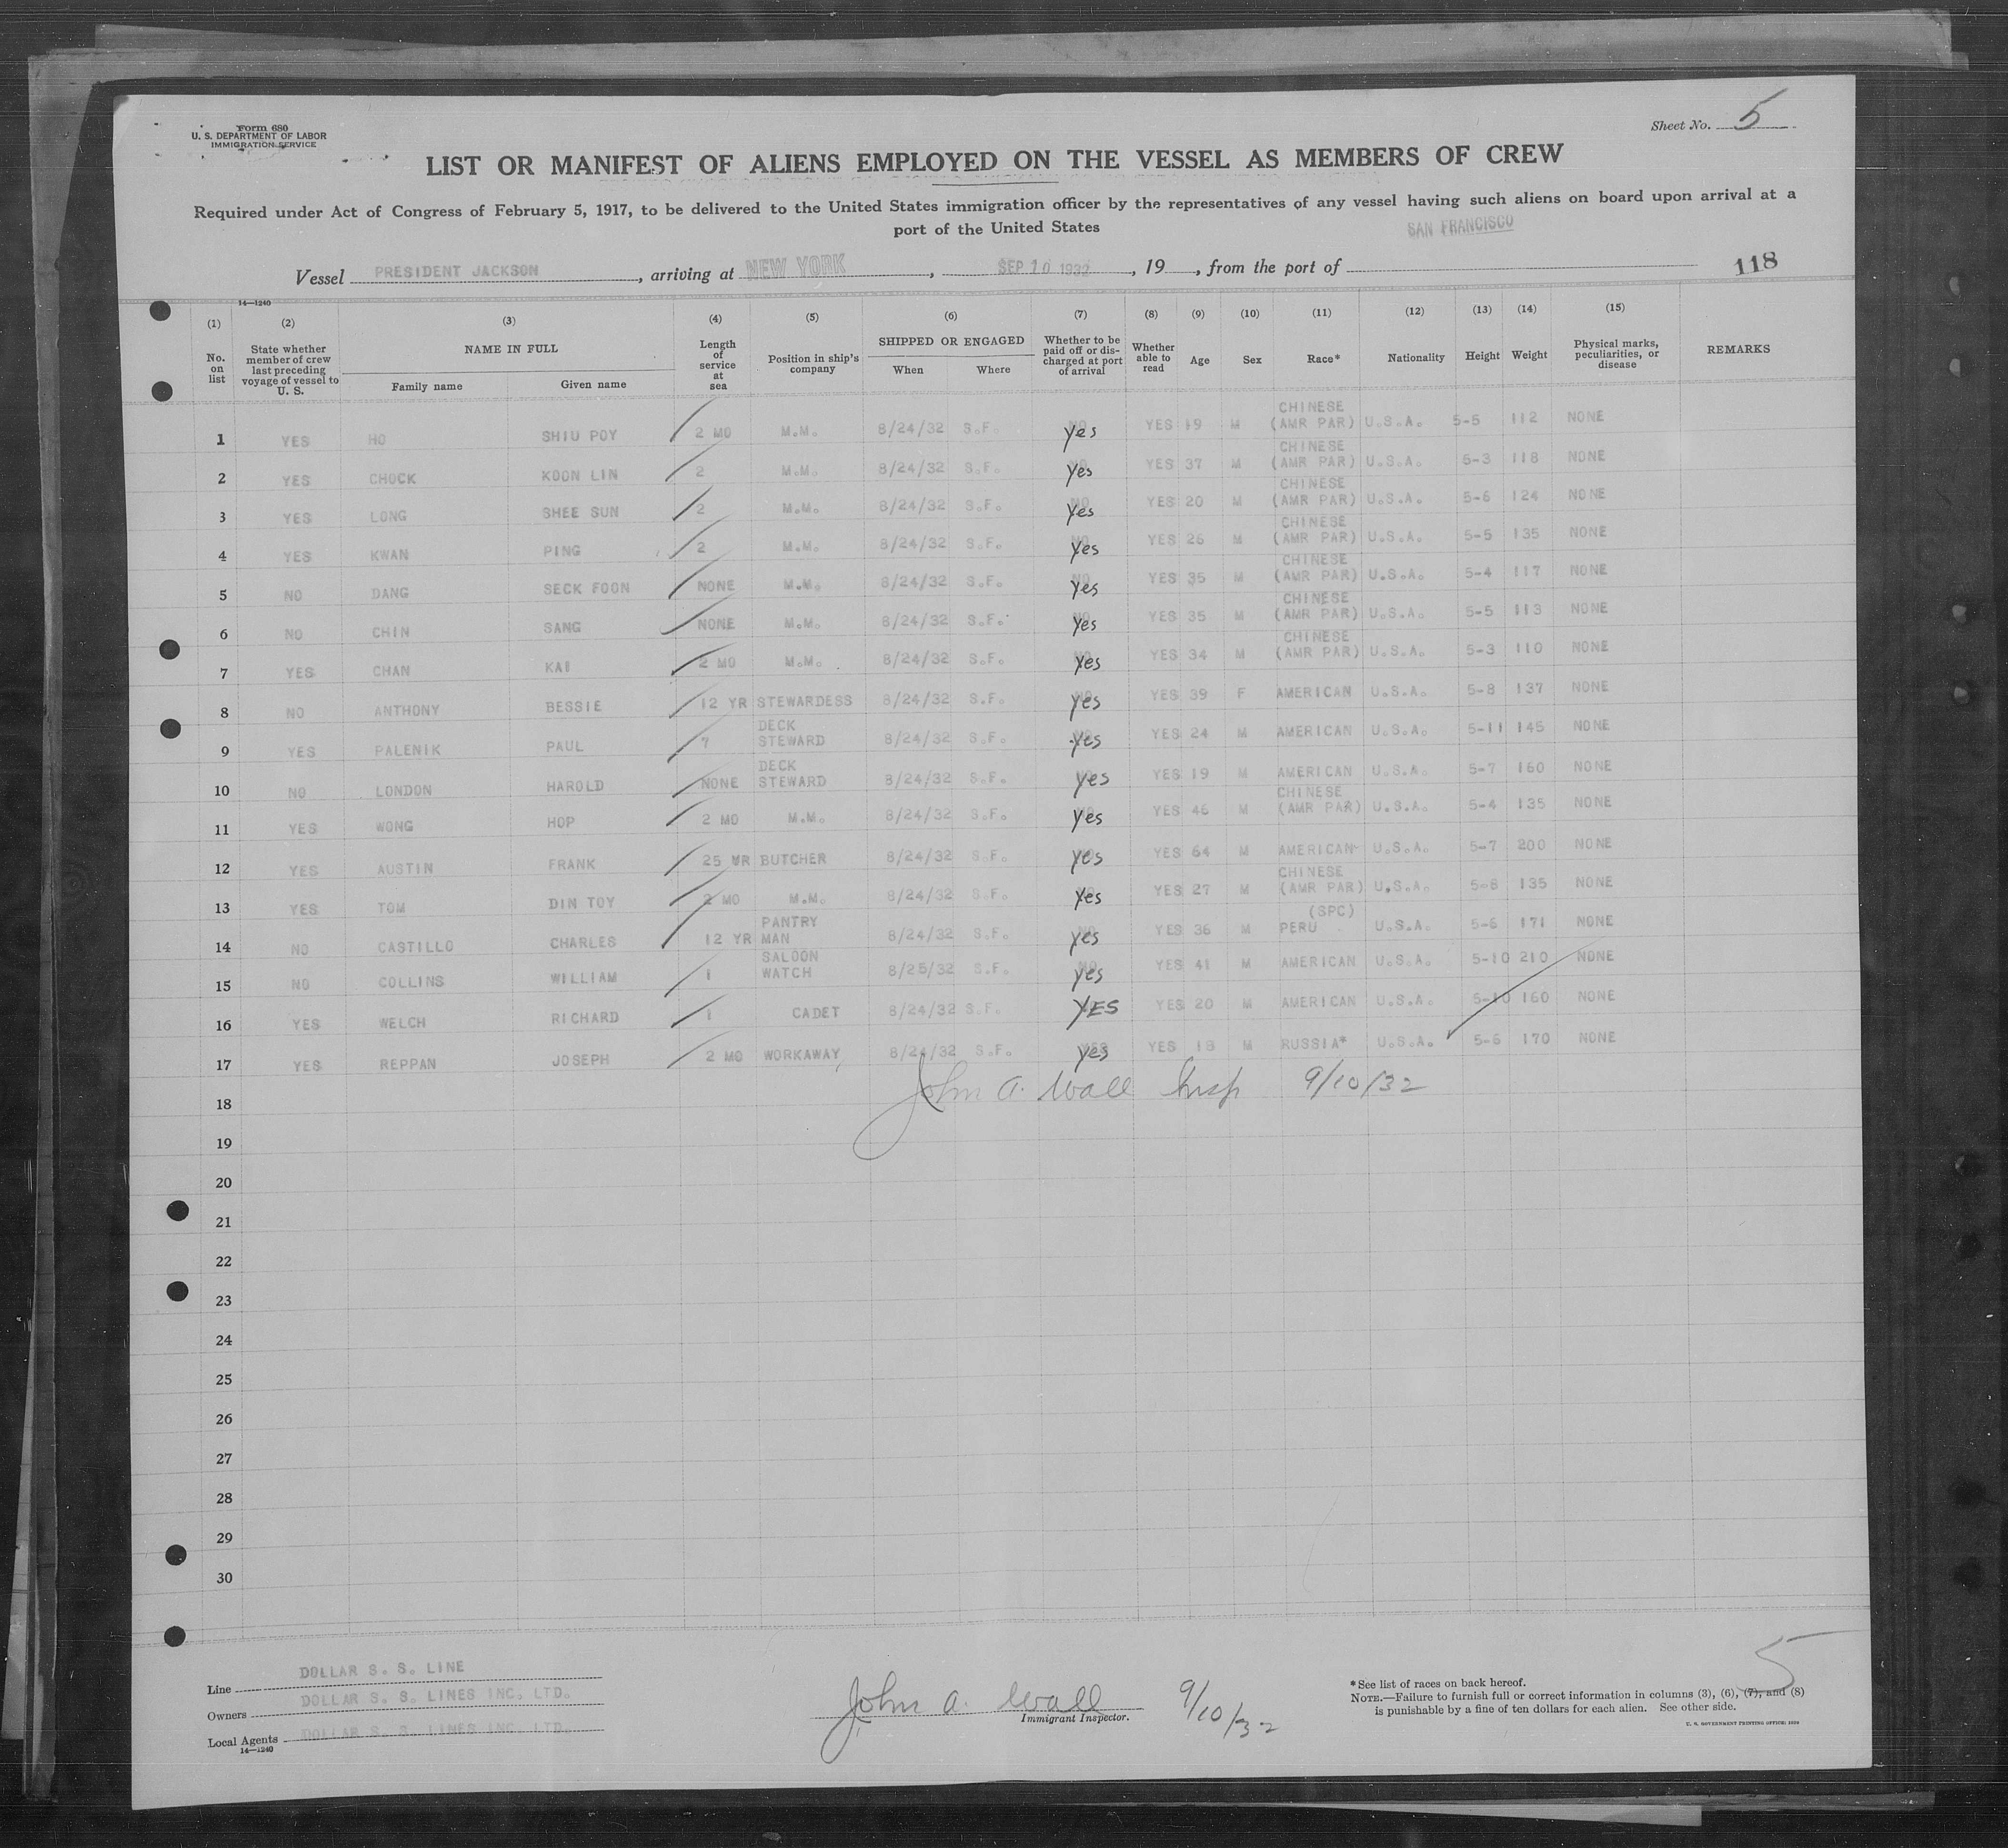 Form 680
U. S. DEPARTMENT OF LABOR
IMMIGRATION SERVICE
Sheet No. 5
LIST OR MANIFEST OF ALIENS EMPLOYED ON THE VESSEL AS MEMBERS OF CREW
Required under Act of Congress of February 5, 1917, to be delivered to the United States immigration officer by the representatives of any vessel having such aliens on board upon arrival at a
port of the United States
SAN FRANCISCO
Vessel PRESIDENT JACKSON, arriving at NEW YORK, SEP 10 1932, 19, from the port of
118
14—1240
(1) (2) (3) (4) (5) (6) (7) (8) (9) (10) (11) (12) (13) (14) (15)
No. on list State whether member of crew last preceding voyage of vessel to U. S. NAME IN FULL Family name Given name Length of service at sea Position in ship's company SHIPPED OR ENGAGED When Where Whether to be paid off or discharged at port of arrival Whether able to read Age Sex Race* Nationality Height Weight Physical marks, peculiarities, or disease REMARKS
1 YES HO SHIU POY 2 MO M.M. 8/24/32 S.F. Yes YES 19 M CHINESE (AMR PAR) U.S.A. 5-5 112 NONE
2 YES CHOCK KOON LIN 2 M.M. 8/24/32 S.F. Yes YES 37 M CHINESE (AMR PAR) U.S.A. 5-3 118 NONE
3 YES LONG SHEE SUN 2 M.M. 8/24/32 S.F. Yes YES 20 M CHINESE (AMR PAR) U.S.A. 5-6 124 NONE
4 YES KWAN PING 2 M.M. 8/24/32 S.F. Yes YES 26 M CHINESE (AMR PAR) U.S.A. 5-5 135 NONE
5 NO DANG SECK FOON NONE M.M. 8/24/32 S.F. Yes YES 35 M CHINESE (AMR PAR) U.S.A. 5-4 117 NONE
6 NO CHIN SANG NONE M.M. 8/24/32 S.F. Yes YES 35 M CHINESE (AMR PAR) U.S.A. 5-5 113 NONE
7 YES CHAN KAI 2 MO M.M. 8/24/32 S.F. Yes YES 34 M CHINESE (AMR PAR) U.S.A. 5-3 110 NONE
8 NO ANTHONY BESSIE 12 YR STEWARDESS 8/24/32 S.F. Yes YES 39 F AMERICAN U.S.A. 5-8 137 NONE
9 YES PALENIK PAUL 7 DECK STEWARD 8/24/32 S.F. Yes YES 24 M AMERICAN U.S.A. 5-11 145 NONE
10 NO LONDON HAROLD NONE DECK STEWARD 8/24/32 S.F. Yes YES 19 M AMERICAN U.S.A. 5-7 160 NONE
11 YES WONG HOP 2 MO M.M. 8/24/32 S.F. Yes YES 46 M CHINESE (AMR PAR) U.S.A. 5-4 135 NONE
12 YES AUSTIN FRANK 25 YR BUTCHER 8/24/32 S.F. Yes YES 64 M AMERICAN U.S.A. 5-7 200 NONE
13 YES TOM DIN TOY 2 MO M.M. 8/24/32 S.F. Yes YES 27 M CHINESE (AMR PAR) U.S.A. 5-8 135 NONE
14 NO CASTILLO CHARLES 12 YR PANTRY MAN 8/24/32 S.F. Yes YES 36 M (SPC) PERU U.S.A. 5-6 171 NONE
15 NO COLLINS WILLIAM 1 SALOON WATCH 8/25/32 S.F. Yes YES 41 M AMERICAN U.S.A. 5-10 210 NONE
16 YES WELCH RICHARD 1 CADET 8/24/32 S.F. YES YES 20 M AMERICAN U.S.A. 5-10 160 NONE
17 YES REPPAN JOSEPH 2 MO WORKAWAY 8/24/32 S.F. Yes YES 18 M RUSSIA* U.S.A. 5-6 170 NONE
John A. Wall Insp 9/10/32
18
19
20
21
22
23
24
25
26
27
28
29
30
Line DOLLAR S. S. LINE
Owners DOLLAR S. S. LINES INC. LTD.
Local Agents DOLLAR S. S. LINES INC. LTD.
14—1240
John A. Wall 9/10/32
Immigrant Inspector.
5
*See list of races on back hereof.
NOTE.—Failure to furnish full or correct information in columns (3), (6), (7), and (8)
is punishable by a fine of ten dollars for each alien. See other side.